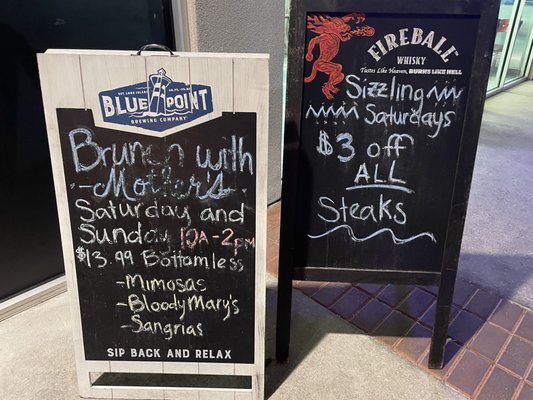 BLUE POINT
BREWING COMPANY
Brunch with
-Mother's-
Saturday and
Sunday 10A-2pm
$13.99 Bottomless
-Mimosas
-Bloody Mary's
-Sangrias
SIP BACK AND RELAX
FIREBALL
WHISKY
Tastes Like Heaven, BURNS LIKE HELL
Sizzling
Saturdays
$3 off
ALL
Steaks